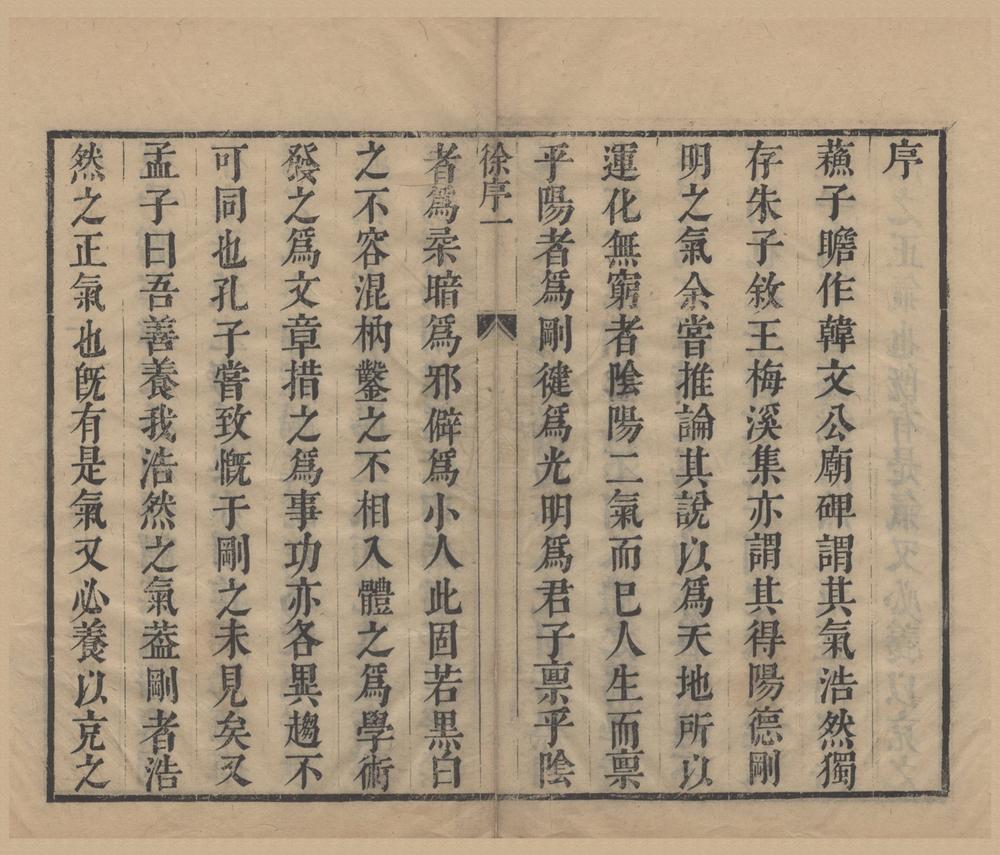 序
蘓子瞻作韓文公廟碑謂其氣浩然獨
存朱子敘王梅溪集亦謂其得陽德剛
明之氣余嘗推論其說以爲天地所以
運化無窮者陰陽二氣而已人生而禀
乎陽者爲剛健爲光明爲君子禀乎陰
徐序一
者爲柔暗爲邪僻爲小人此固若黑白
之不容混枘鑿之不相入體之爲學術
發之爲文章措之爲事功亦各異趨不
可同也孔子嘗致慨于剛之未見矣又
孟子曰吾善養我浩然之氣葢剛者浩
然之正氣也旣有是氣又必養以充之